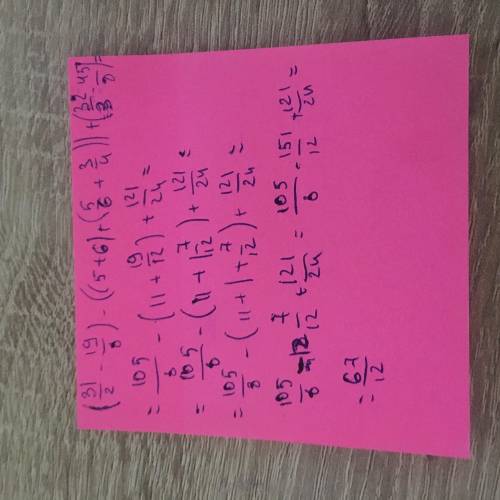 (31/2 - 19/8) - ((5+6)+(5/6 + 3/4)) + (32/3 - 45/8) =
= 105/8 - (11 + 19/12) + 121/24 =
= 105/8 - (11 + 1 7/12) + 121/24 =
= 105/8 - (11 + 1 + 7/12) + 121/24 =
105/8 - 12 7/12 + 121/24 = 105/8 - 151/12 + 121/24 =
= 67/12